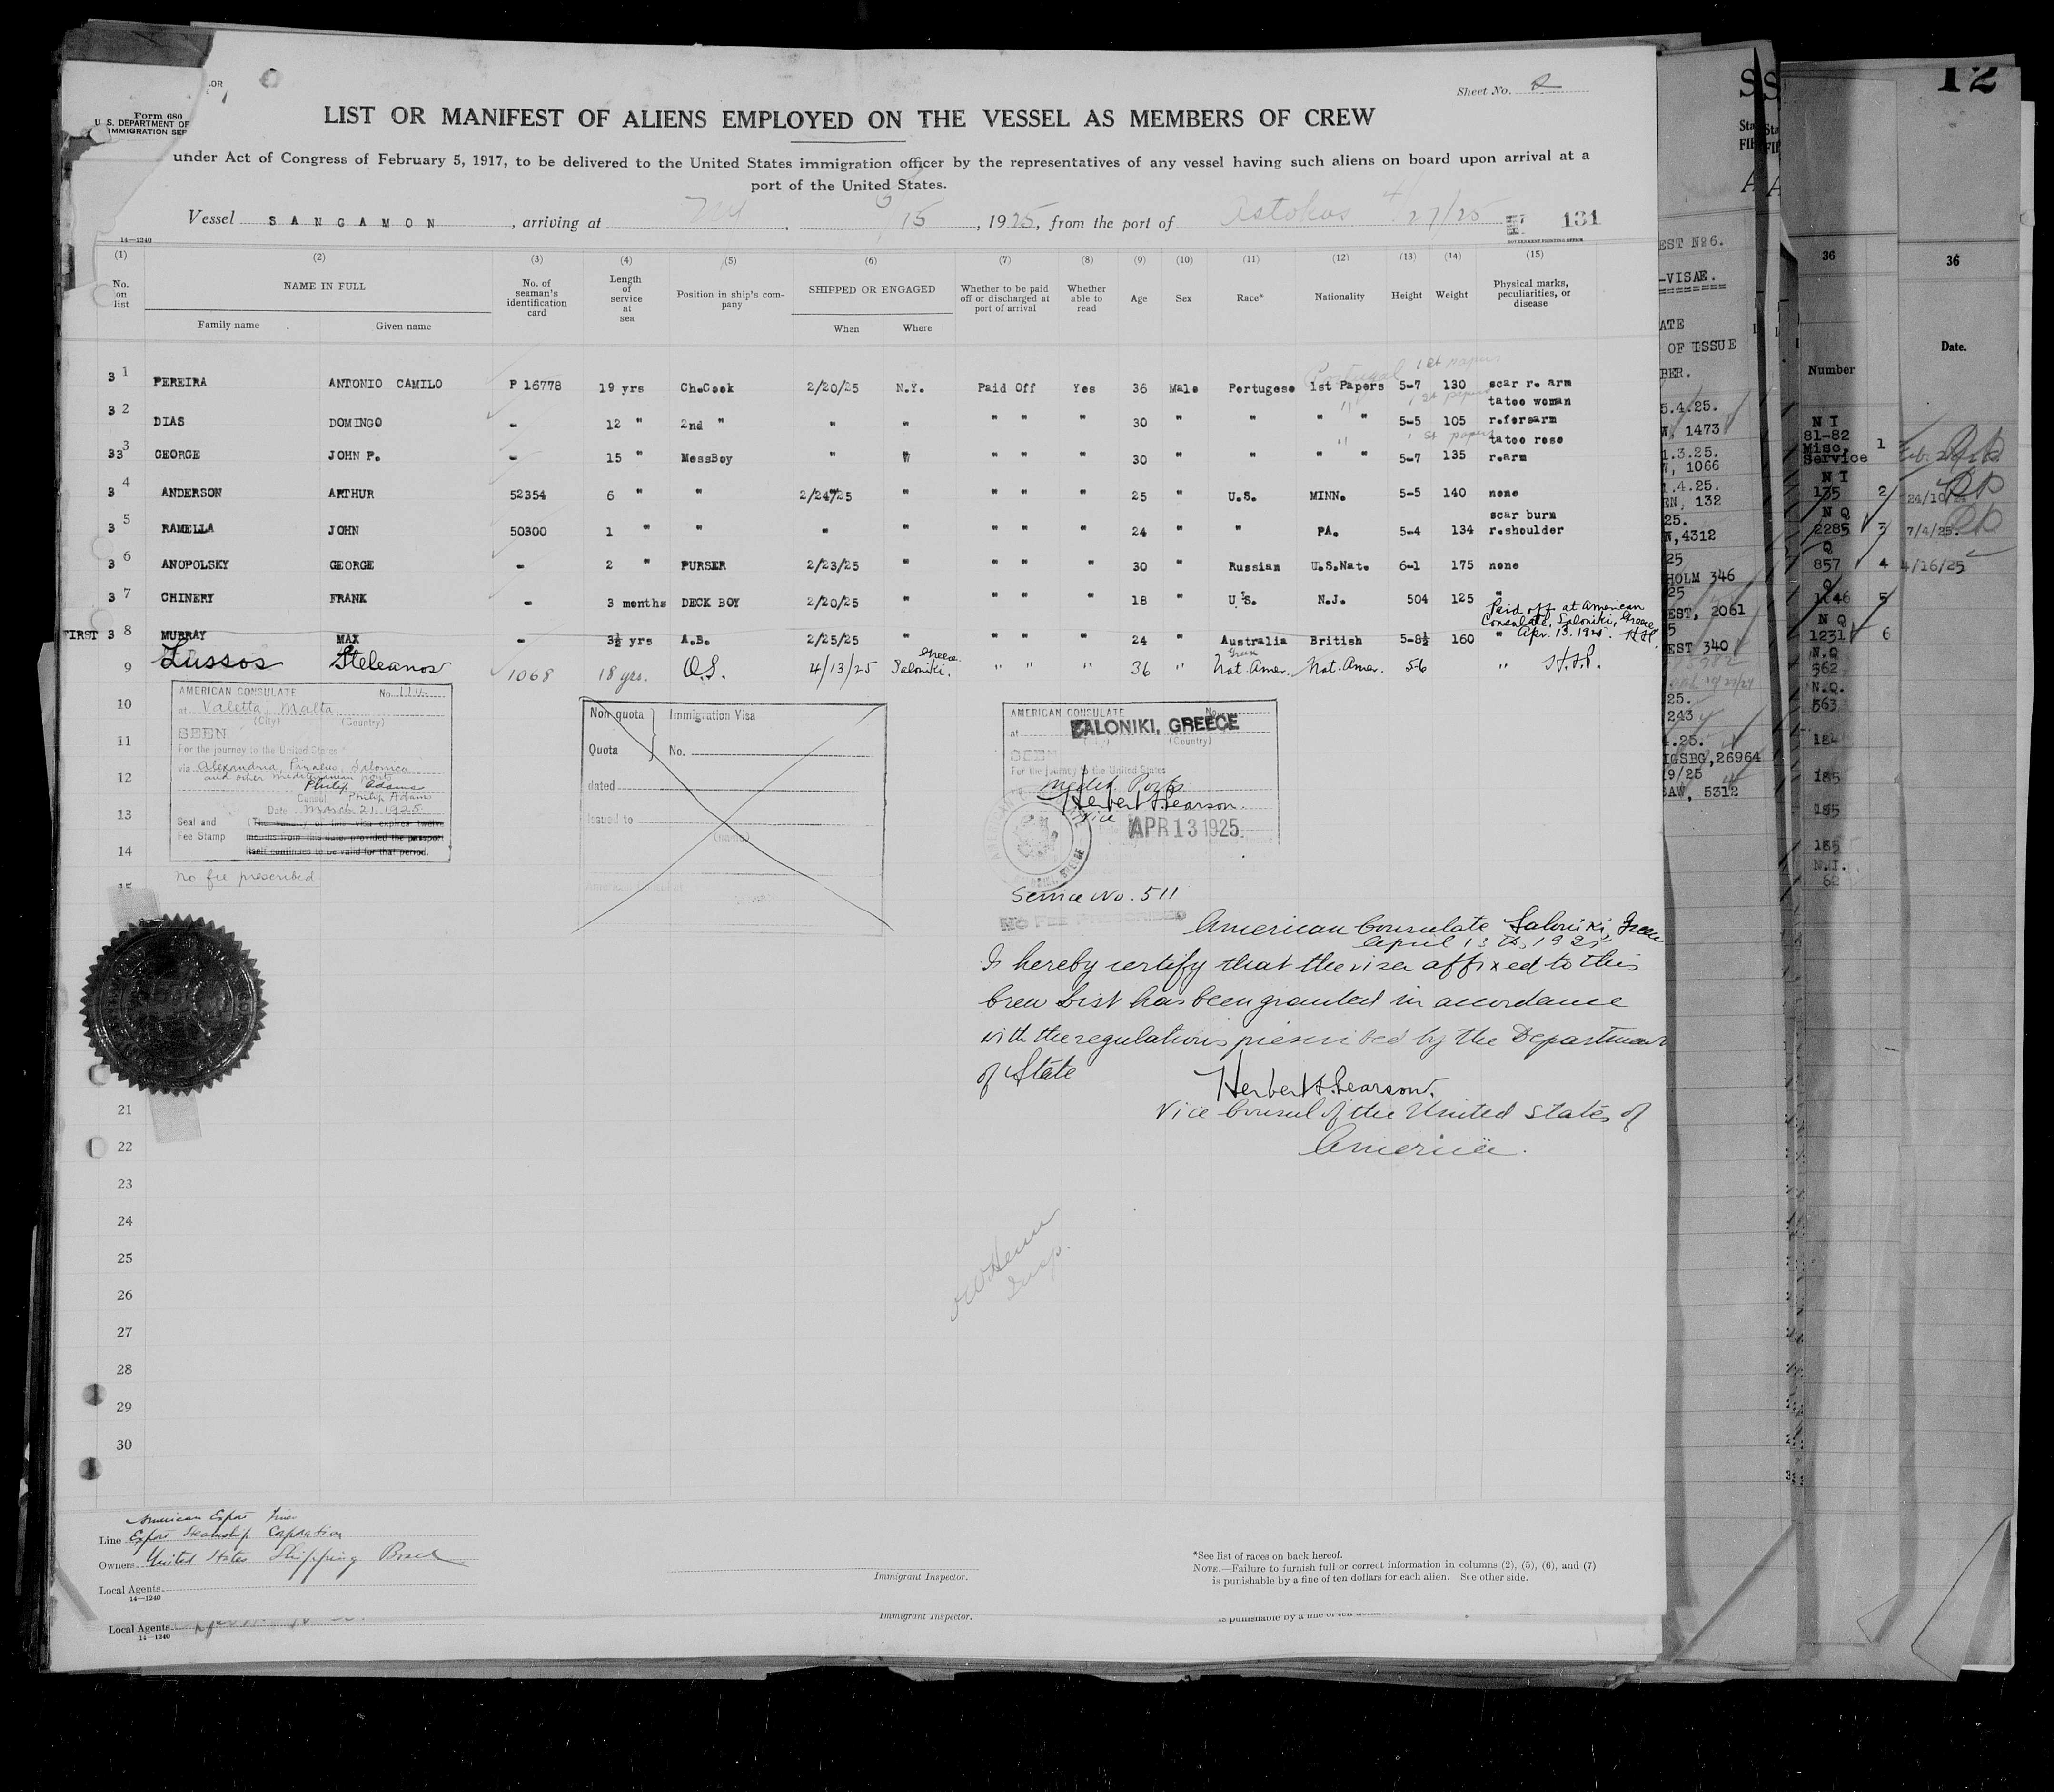 Sheet No. 2
Form 680
U. S. DEPARTMENT OF
IMMIGRATION SER
LIST OR MANIFEST OF ALIENS EMPLOYED ON THE VESSEL AS MEMBERS OF CREW
under Act of Congress of February 5, 1917, to be delivered to the United States immigration officer by the representatives of any vessel having such aliens on board upon arrival at a
port of the United States.
Vessel SANGAMON, arriving at NY, 15, 1925, from the port of 4/27/25 131
14—1240
GOVERNMENT PRINTING OFFICE
(1) (2) (3) (4) (5) (6) (7) (8) (9) (10) (11) (12) (13) (14) (15)
No. on list NAME IN FULL No. of seaman's identification card Length of service at sea Position in ship's company SHIPPED OR ENGAGED Whether to be paid off or discharged at port of arrival Whether able to read Age Sex Race* Nationality Height Weight Physical marks, peculiarities, or disease
Family name Given name When Where
Portugal 1st papers
3 1 PEREIRA ANTONIO CAMILO P 16778 19 yrs Ch.Cook 2/20/25 N.Y. Paid Off Yes 36 Male Portugese 1st Papers 5-7 130 scar r. arm
1st papers
3 2 DIAS DOMINGO - 12 " 2nd " " " " " " 30 " " " " 5-5 105 tatoo woman r.forearm
1st papers
33 3 GEORGE JOHN P. - 15 " MessBoy " " " " " 30 " " " " 5-7 135 tatoo rose r.arm
3 4 ANDERSON ARTHUR 52354 6 " " 2/24/25 " " " " 25 " U.S. MINN. 5-5 140 none
3 5 RAMELLA JOHN 50300 1 " " " " " " " 24 " " PA. 5-4 134 scar burn r.shoulder
3 6 ANOPOLSKY GEORGE - 2 " PURSER 2/23/25 " " " " 30 " Russian U.S.Nat. 6-1 175 none
3 7 CHINERY FRANK - 3 months DECK BOY 2/20/25 " " " " 18 " U.S. N.J. 504 125 "
Paid off at American Consulate, Saloniki, Greece Apr. 13. 1925. H.S.P.
FIRST 3 8 MURRAY MAX - 3½ yrs A.B. 2/25/25 " " " " 24 " Australia British 5-8½ 160 "
9 Zussos Steleanos 1068 18 yrs. O.S. 4/13/25 Saloniki, Greece. " " " 36 " Greek Nat. Amer. Nat. Amer. 56 " H.S.P.
10
11
12
13
14
15
AMERICAN CONSULATE No. 114
at Valetta, Malta
(City) (Country)
SEEN
For the journey to the United States
via Alexandria, Piraeus, Salonica
and other mediterranean ports
Philip Adams
Consul Philip Adams
Date March 21, 1925
Seal and
Fee Stamp
months from this date, provided the passport
itself continues to be valid for that period.
No fee prescribed
Non quota
Quota
Immigration Visa
No.
dated
Issued to
(name)
AMERICAN CONSULATE No.
at SALONIKI, GREECE
(Country)
SEEN
For the journey to the United States
Medit. Ports
Herbert S. Pearson
Vice
APR 13 1925
Service No. 511
NO FEE PRESCRIBED
American Consulate Saloniki, Greece
April 13th, 1925
I hereby certify that the visa affixed to this
Crew List has been granted in accordance
with the regulations prescribed by the Department
of State
Herbert S. Pearson.
Vice Consul of the United States of
America.
21
22
23
24
25
26
27
28
29
30
Insp.
American Export Lines
Line Export Steamship Corporation
Owners United States Shipping Board
Local Agents
14—1240
Immigrant Inspector.
*See list of races on back hereof.
NOTE.—Failure to furnish full or correct information in columns (2), (5), (6), and (7)
is punishable by a fine of ten dollars for each alien. See other side.
Local Agents
14—1240
Immigrant Inspector.
EST No 6.
-VISAE.
ATE
OF ISSUE
BER.
5.4.25.
1473
1.3.25.
1066
.4.25.
EN, 132
25.
N,4312
25
HOLM 346
25
EST, 2061
EST 340
25.
243
.25.
IGSBG,26964
9/25
AW, 5312
12
36
36
Number
Date.
N I
81-82
Misc.
Service 1
N I
135 2 24/10/24
N Q
2285 3 7/4/25.
Q
857 4 4/16/25
Q
1046 5
N Q
1231 6
N.Q
562
N.Q.
563
184
185
185
185
N.I.
62